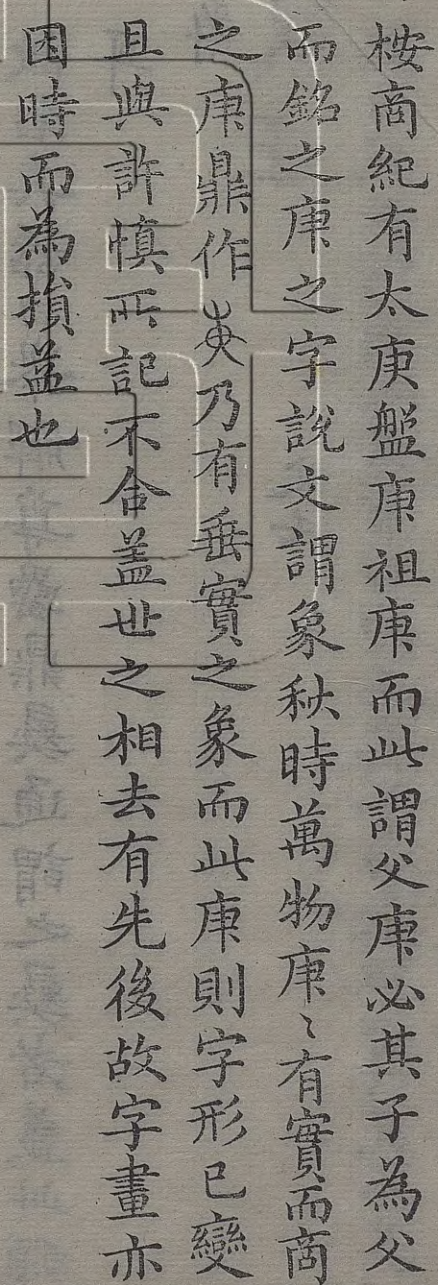 桉商紀有太庚盤庚祖庚而此謂父庚必其子為父
而銘之庚之字說文謂象秋時萬物庚〻有實而商
之庚鼎作乃有垂實之象而此庚則字形已變
且與許慎所記不合蓋世之相去有先後故字畫亦
因時而為損益也